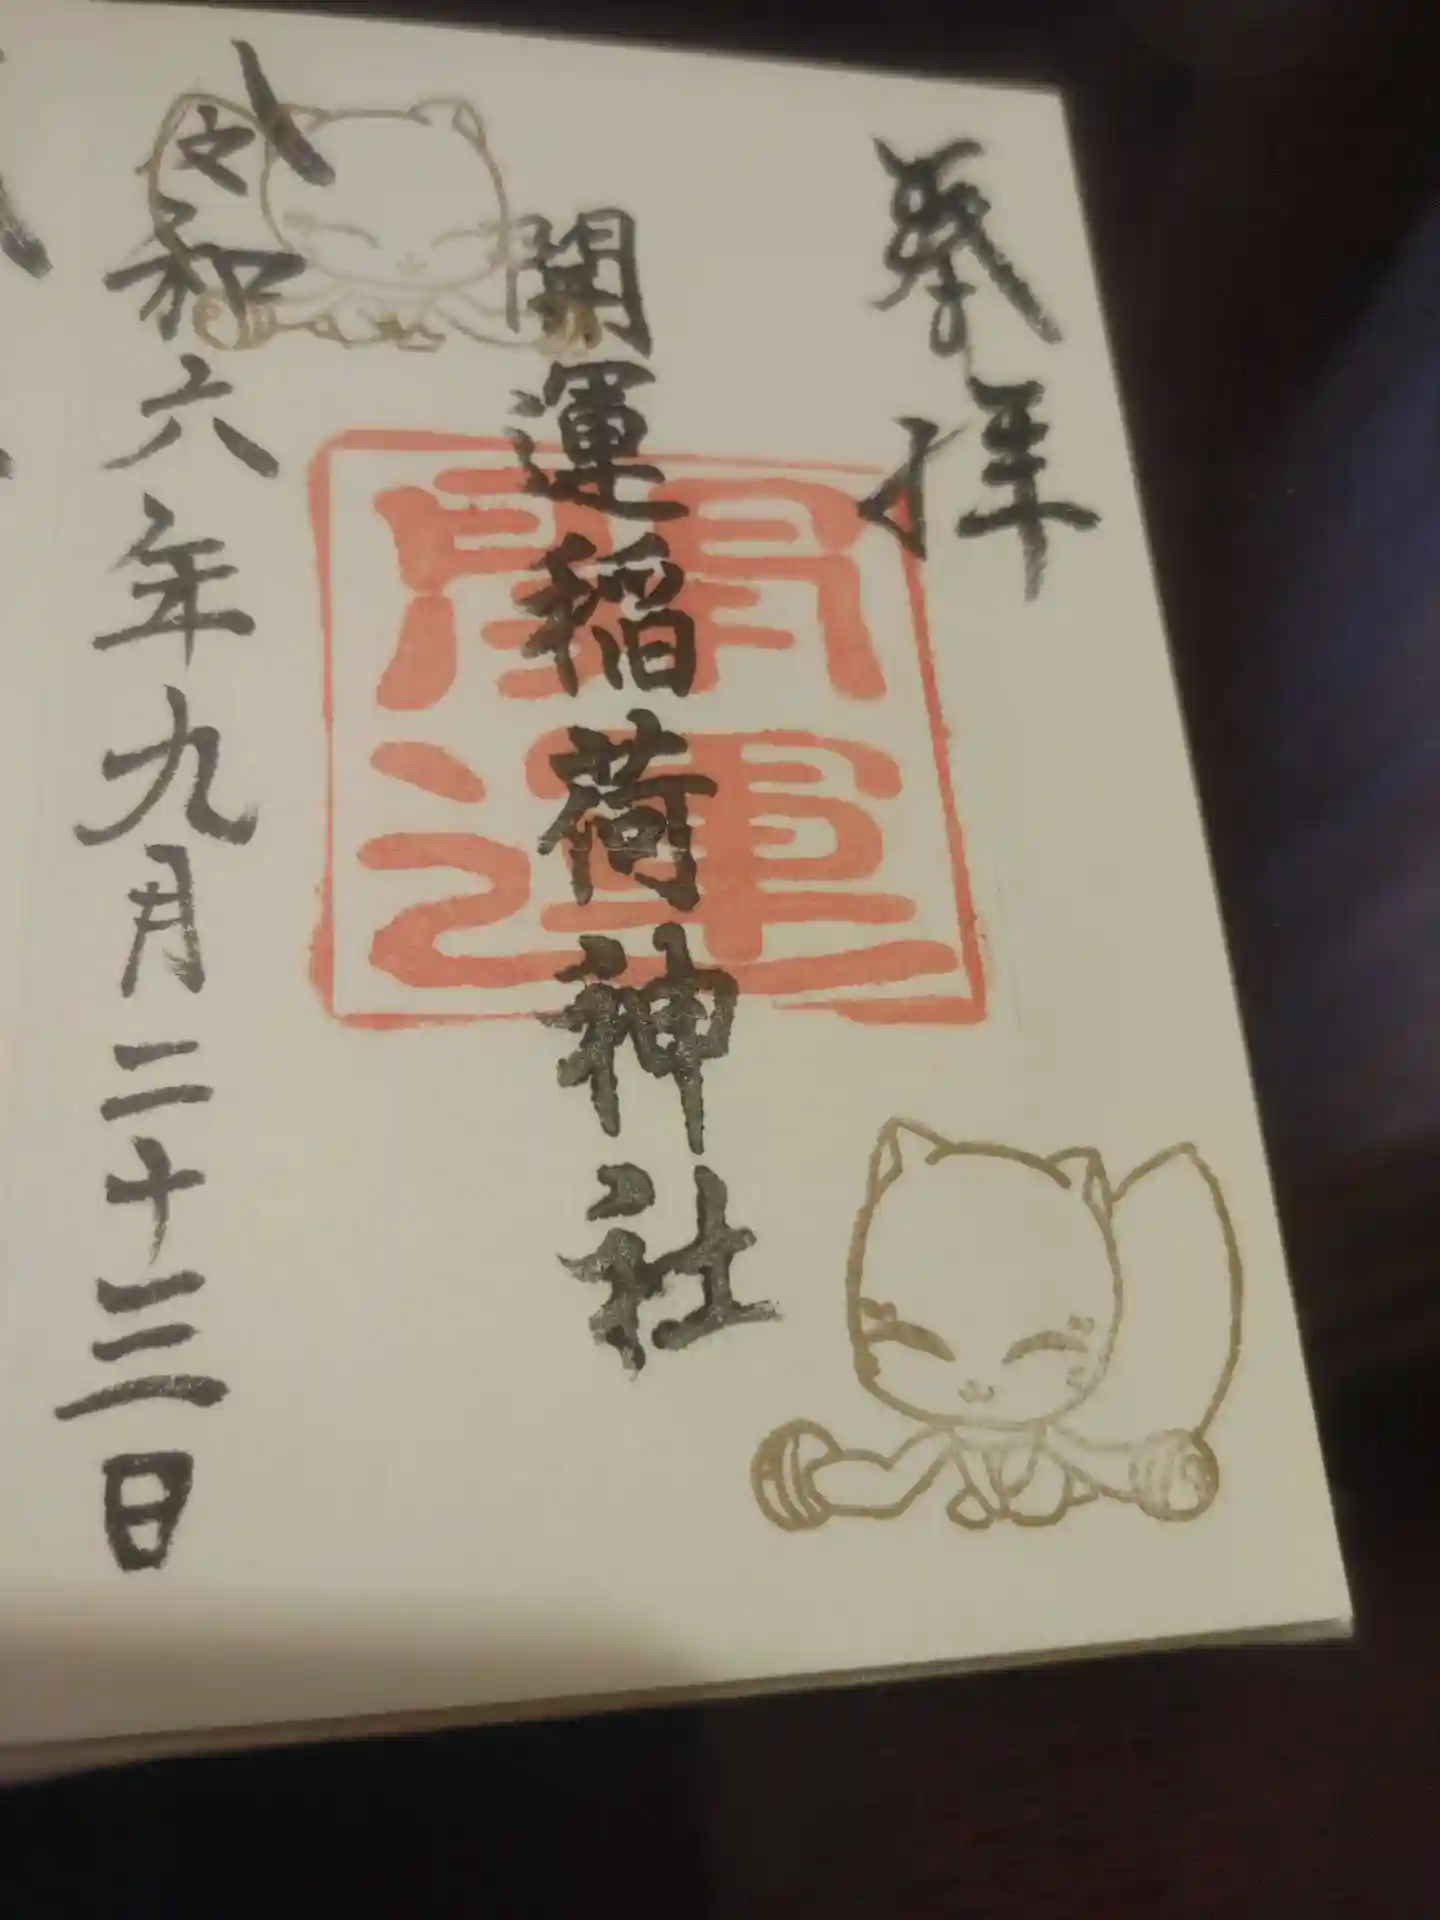 奉拝
開運稲荷神社
開運
令和六年九月二十三日